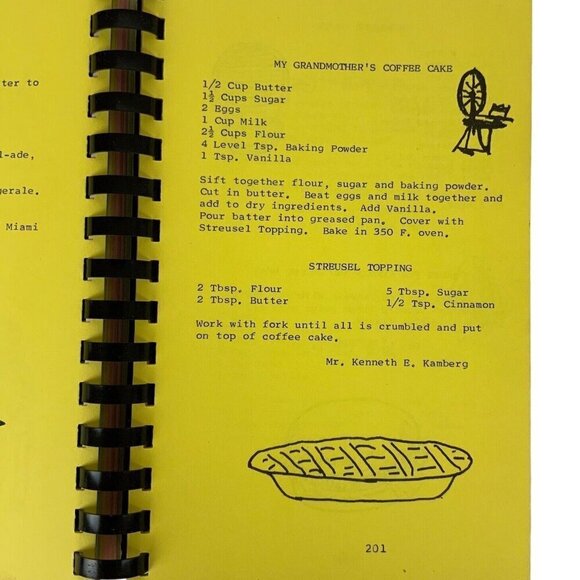 ter to
l-ade,
gerale.
Miami
MY GRANDMOTHER'S COFFEE CAKE
1/2 Cup Butter
1½ Cups Sugar
2 Eggs
1 Cup Milk
2½ Cups Flour
4 Level Tsp. Baking Powder
1 Tsp. Vanilla
Sift together flour, sugar and baking powder.
Cut in butter. Beat eggs and milk together and
add to dry ingredients. Add Vanilla.
Pour batter into greased pan. Cover with
Streusel Topping. Bake in 350 F. oven.
STREUSEL TOPPING
2 Tbsp. Flour 5 Tbsp. Sugar
2 Tbsp. Butter 1/2 Tsp. Cinnamon
Work with fork until all is crumbled and put
on top of coffee cake.
Mr. Kenneth E. Kamberg
201